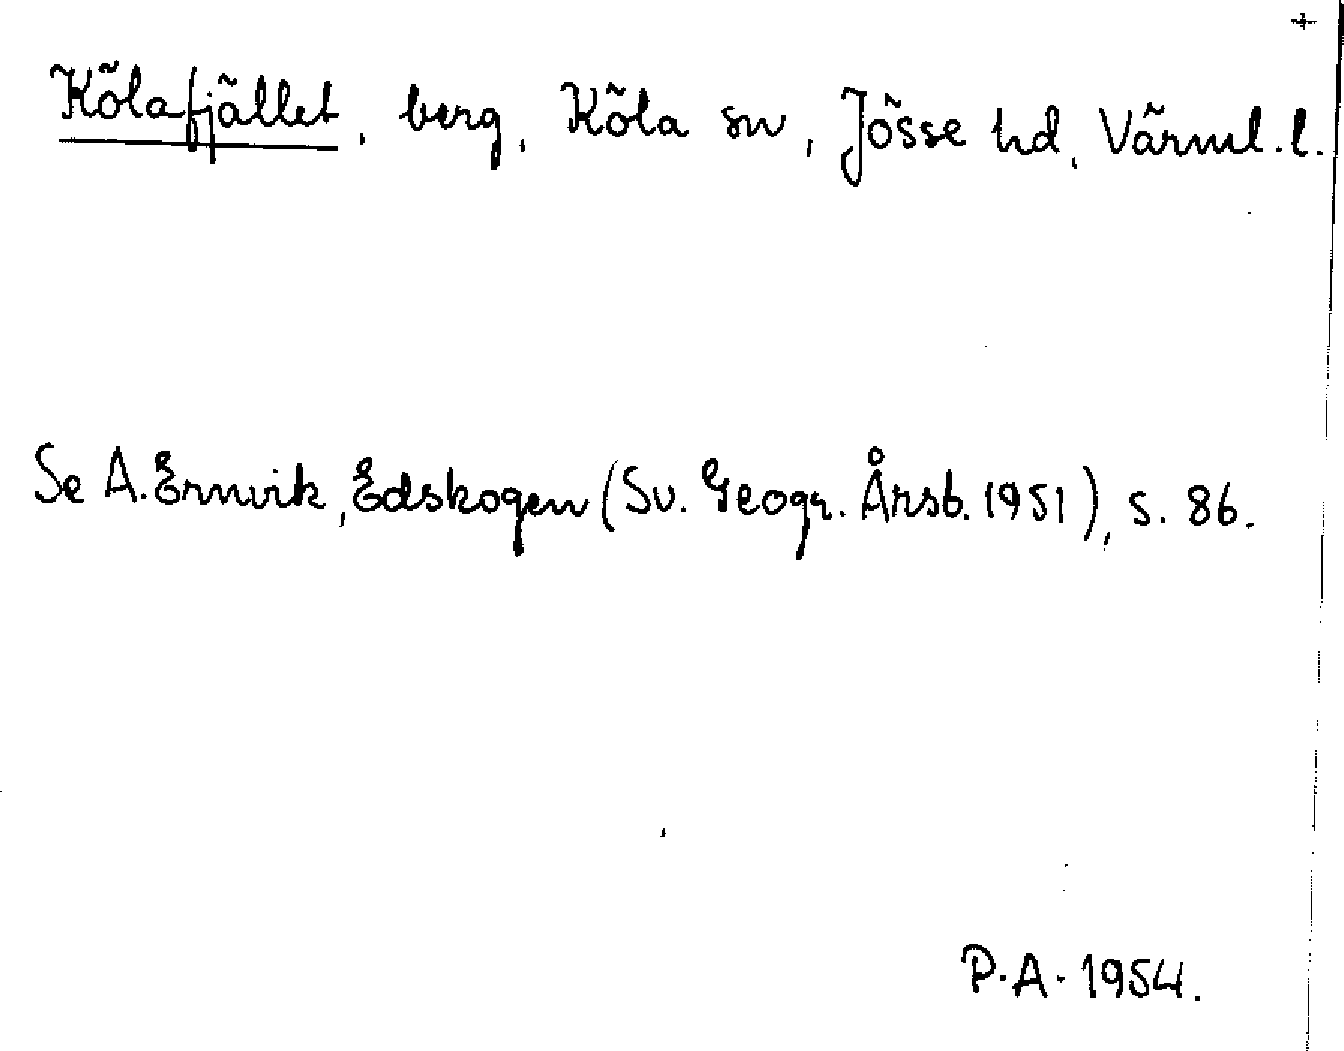 +
Kölafjället, berg, Köla sn, Jösse hd, Värml. l.
Se A. Ernvik, Edskogen (Sv. Geogr. Årsb. 1951), s. 86.
P.A. 1954.